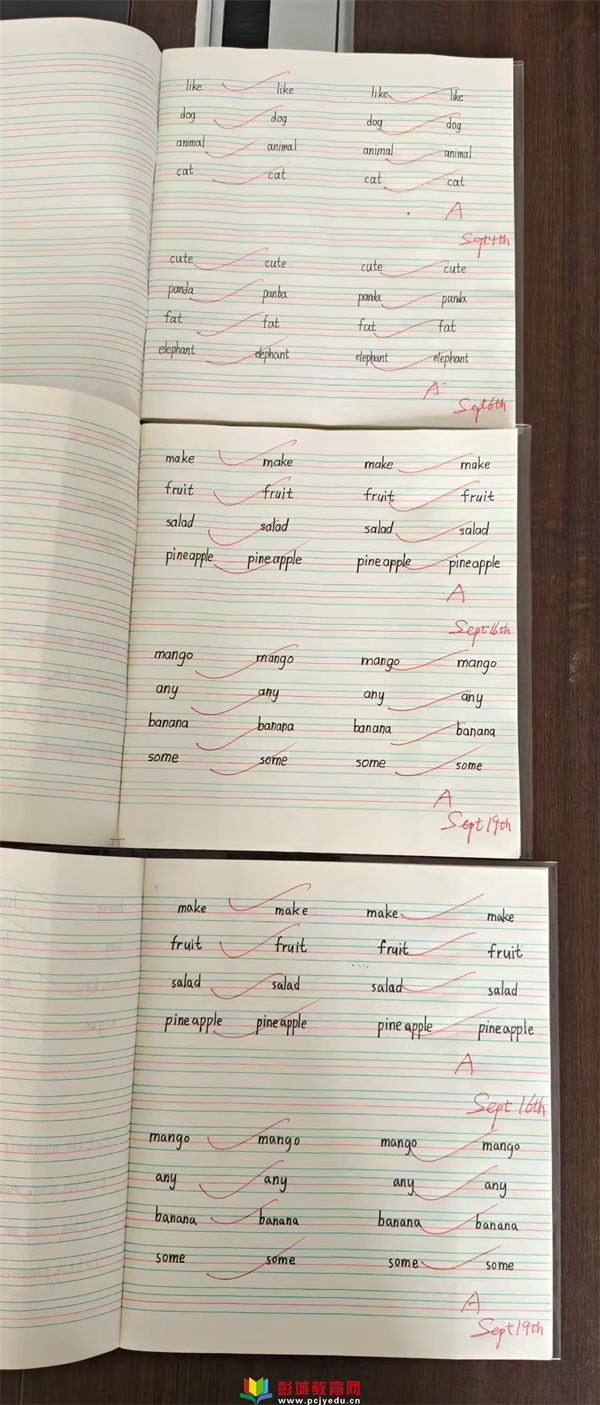 like like like like
dog dog dog dog
animal animal animal animal
cat cat cat cat
A
Sept 4th
cute cute cute cute
panda panba panda panda
fat fat fat fat
elephant elephant elephant elephant
A
Sept 6th
make make make make
fruit fruit fruit fruit
salad salad salad salad
pineapple pineapple pineapple pineapple
A
Sept 16th
mango mango mango mango
any any any any
banana banana banana banana
some some some some
A
Sept 19th
make make make make
fruit fruit fruit fruit
salad salad salad salad
pineapple pineapple pineapple pineapple
A
Sept 16th
mango mango mango mango
any any any any
banana banana banana banana
some some some some
A
Sept 19th
彭城教育网
www.pcjyedu.cn